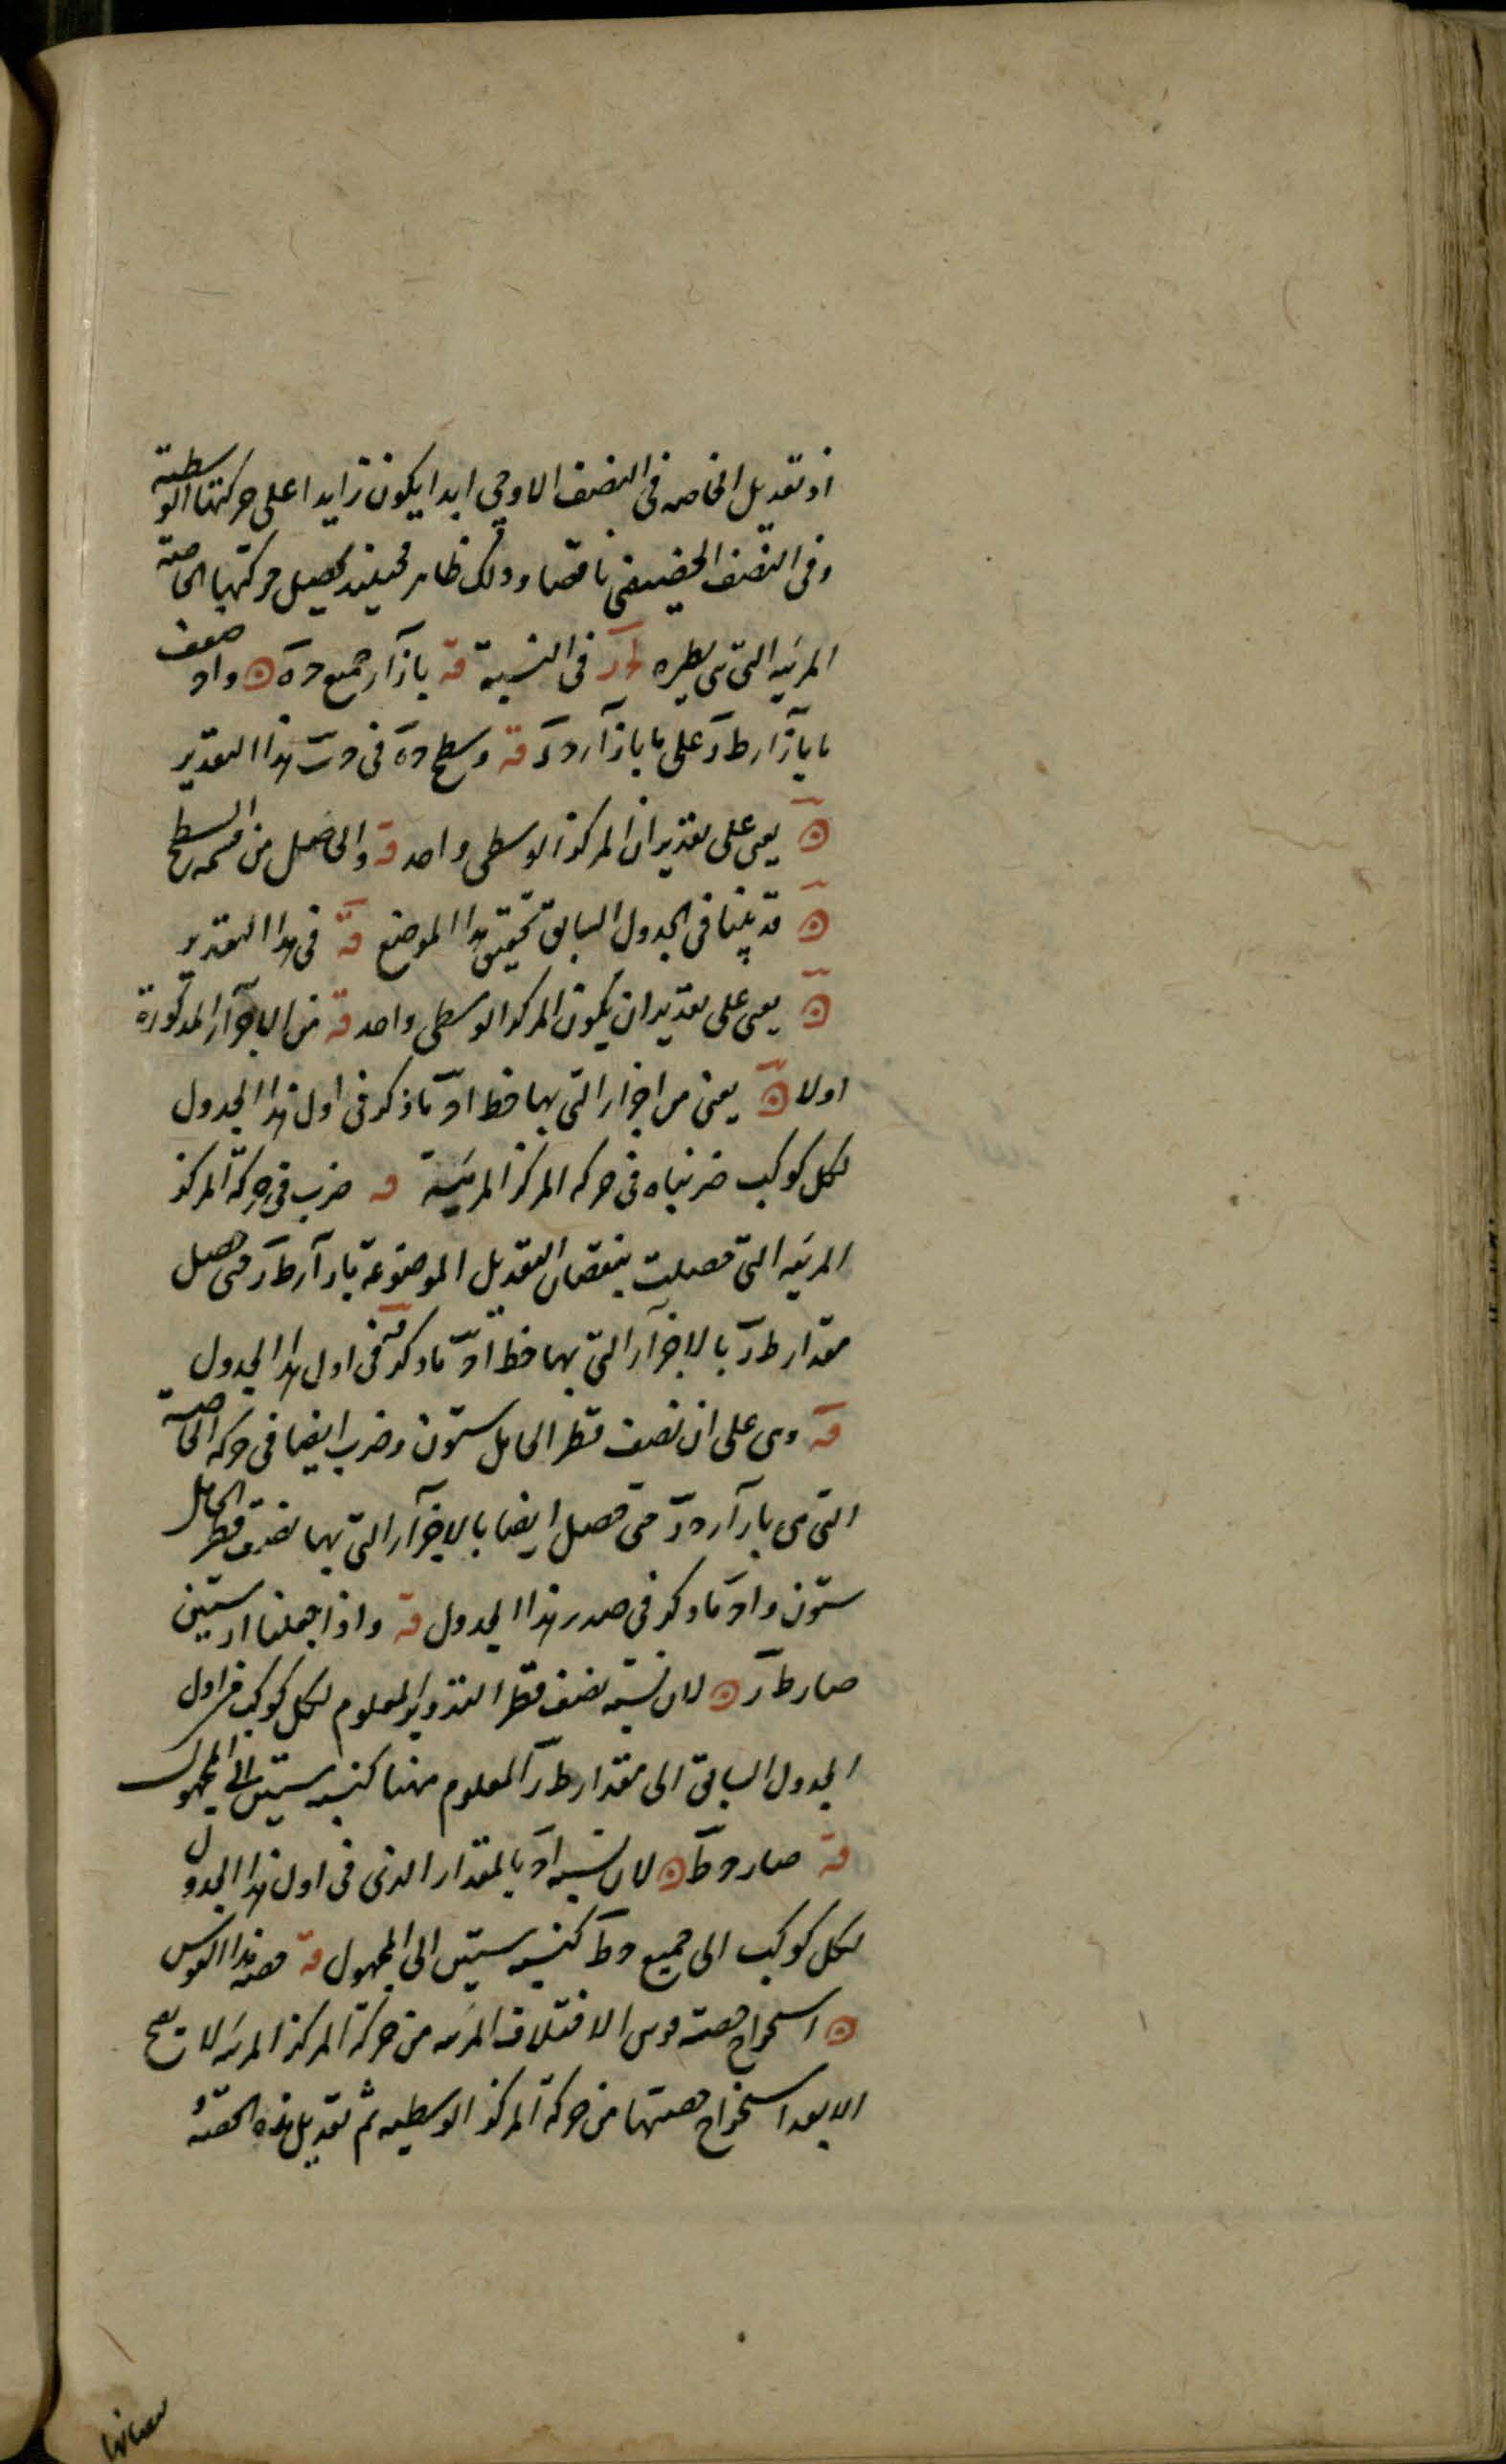 اذ تعديل الخاصه فى النصف الاوجى ابدا يكون زايدا على حركتها الوسطية
وفى النصف الحضيضى ناقصا وذلك ظاهر فحينئذ يحصل حركتها الخاصة
المرئيه التى هى نظيره طر فى النسبة قه بازآ جميع ده ۞ واد ضعف
ما بازآ ط د على ما بازآ د د قه وسطح ده فى دب هذا التقدير
۞ يعنى على تقدير ان المركز الوسطى واحد قه والحاصل من قسمه السطح
۞ قد بينا فى الجدول السابق تحقيق هذا الموضع قه فى هذا التقدير
۞ يعنى على تقدير ان يكون المركز الوسطى واحد قه من الاجزآ المذكورة
اولا ۞ يعنى من اجزا التى بها خط اد ما ذكر فى اول هذا الجدول
لكل كوكب ضربناه فى حركه المركز المرئية قه ضرب فى حركة المركز
المرئيه التى حصلت بنقصان التعديل الموضوعة بازآ ط ر حتى حصل
مقدار ط ر بالاجزآ التى بها خط اد ما ذكر فى اول هذا الجدول
قه وهى على ان نصف قطر الحامل ستون وضرب ايضا فى حركه الخاصة
التى هى بازآ د ر حتى حصل ايضا بالاجزآ التى بها نصف قطر الحامل
ستون واد ما ذكر فى صدر هذا الجدول قه واذا جعلنا ار ستين
صار ط ر ۞ لان نسبة نصف قطر التدوير المعلوم لكل كوكب فى اول
الجدول السابق الى مقدار ط ر المعلوم ههنا كنسبه ستين الى المجهول
قه صار د ط ۞ لان نسبه اد بالمقدار الذى فى اول هذا الجدول
لكل كوكب الى جميع د ط كنسبه ستين الى المجهول قه حصه هذا القوس
۞ استخراج حصه قوس الاختلاف المرئيه من حركة المركز المرئيه لا يصح
الا بعد استخراج حصتها من حركة المركز الوسطيه ثم تعديل هذه الحصة